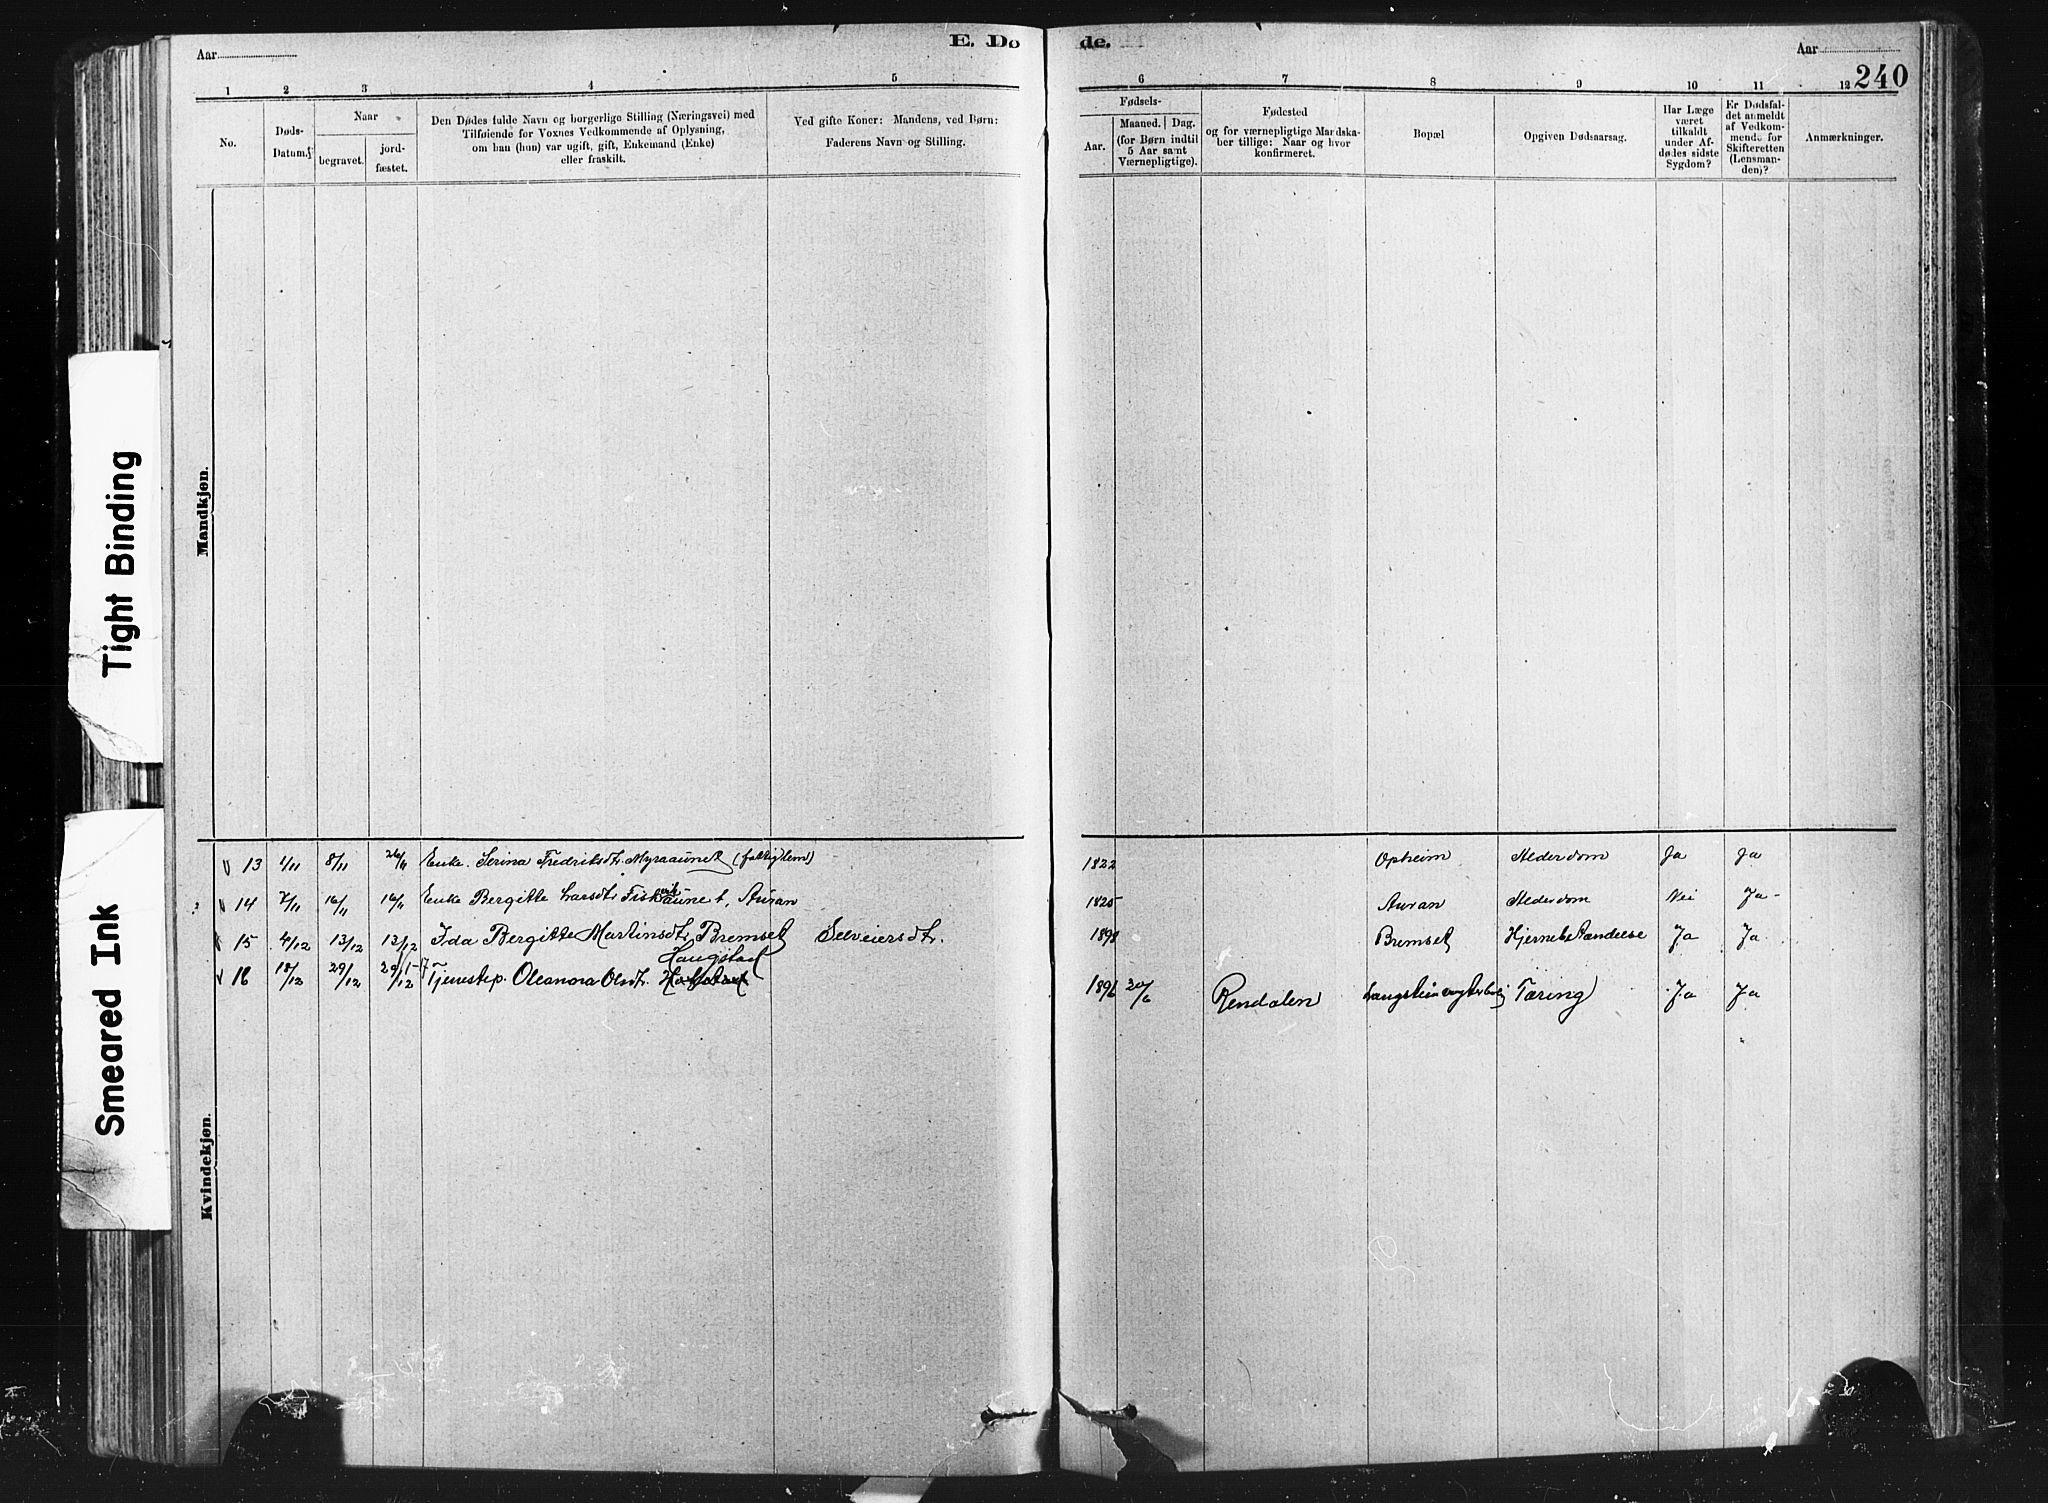 Aar
E. Dø
de.
Aar
240
1 2 3 4 5 6 7 8 9 10 11 12
No.
Døds-
Datum.
Naar
begravet.
jord-
fæstet.
Den Dødes fulde Navn og borgerlige Stilling (Næringsvei) med
Tilføiende for Voxnes Vedkommende af Oplysning,
om han (hun) var ugift, gift, Enkemand (Enke)
eller fraskilt.
Ved gifte Koner: Mandens, ved Børn:
Faderens Navn og Stilling.
Fødsels-
Aar.
Maaned. Dag.
(for Børn indtil
5 Aar samt
Værnepligtige).
Fødested
og for værnepligtige Mandska-
ber tillige: Naar og hvor
konfirmeret.
Bopæl
Opgiven Dødsaarsag.
Har Læge
været
tilkaldt
under Af-
dødes sidste
Sygdom?
Er Dødsfal-
det anmeldt
af Vedkom-
mende for
Skifteretten
(Lensman-
den)?
Anmærkninger.
Mandkjøn.
Tight Binding
Smeared Ink
Kvindekjøn.
13 1/11 8/11 26/11 Enke. Serina Fredriksdtr. Myraaunet (fattiglem) 1822 Opheim Alderdom Ja Ja
14 7/11 16/11 16/11 Enke Bergitte Larsdtr Fiskvikaunet, Auran 1825 Auran Alderdom Nei Ja
15 4/12 13/12 13/12 Ida Bergitte Martinsdtr. Bremset Selveiersdtr. 1898 Bremset Hjernebetændelse Ja Ja
Langstad
16 18/12 29/12 29/12 Tjenestep. Oleanora Olsdtr. 1896 20/6 Rendalen Tæring Ja Ja